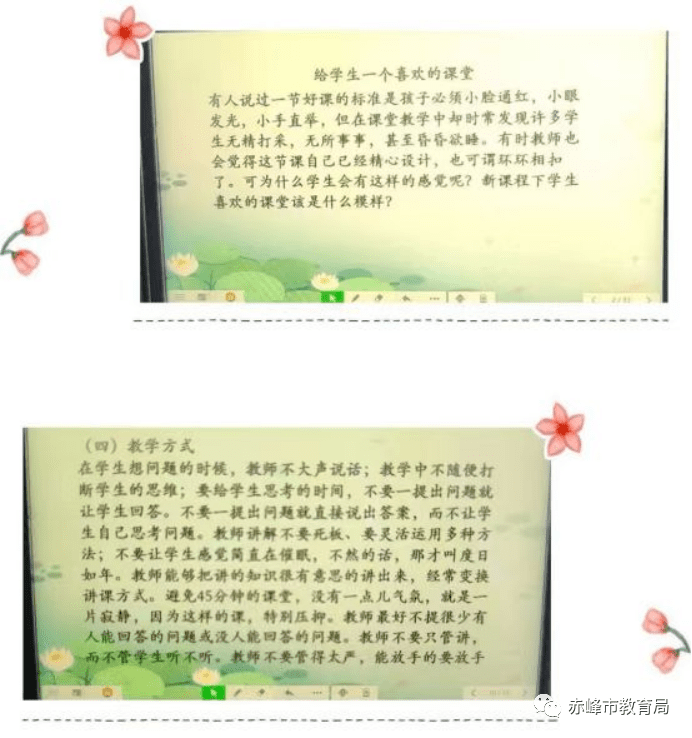 给学生一个喜欢的课堂
有人说过一节好课的标准是孩子必须小脸通红，小眼
发光，小手直举，但在课堂教学中却时常发现许多学
生无精打采，无所事事，甚至昏昏欲睡。有时教师也
会觉得这节课自己已经精心设计，也可谓环环相扣
了。可为什么学生会有这样的感觉呢？新课程下学生
喜欢的课堂该是什么模样？
（四）教学方式
在学生想问题的时候，教师不大声说话；教学中不随便打
断学生的思维；要给学生思考的时间，不要一提出问题就
让学生回答。不要一提出问题就直接说出答案，而不让学
生自己思考问题。教师讲解不要死板、要灵活运用多种方
法；不要让学生感觉简直在催眠，不然的话，那才叫度日
如年。教师能够把讲的知识很有意思的讲出来，经常变换
讲课方式。避免45分钟的课堂，没有一点儿气氛，就是一
片寂静，因为这样的课，特别压抑。教师最好不提很少有
人能回答的问题或没人能回答的问题。教师不要只管讲，
而不管学生听不听。教师不要管得太严，能放手的要放手
赤峰市教育局